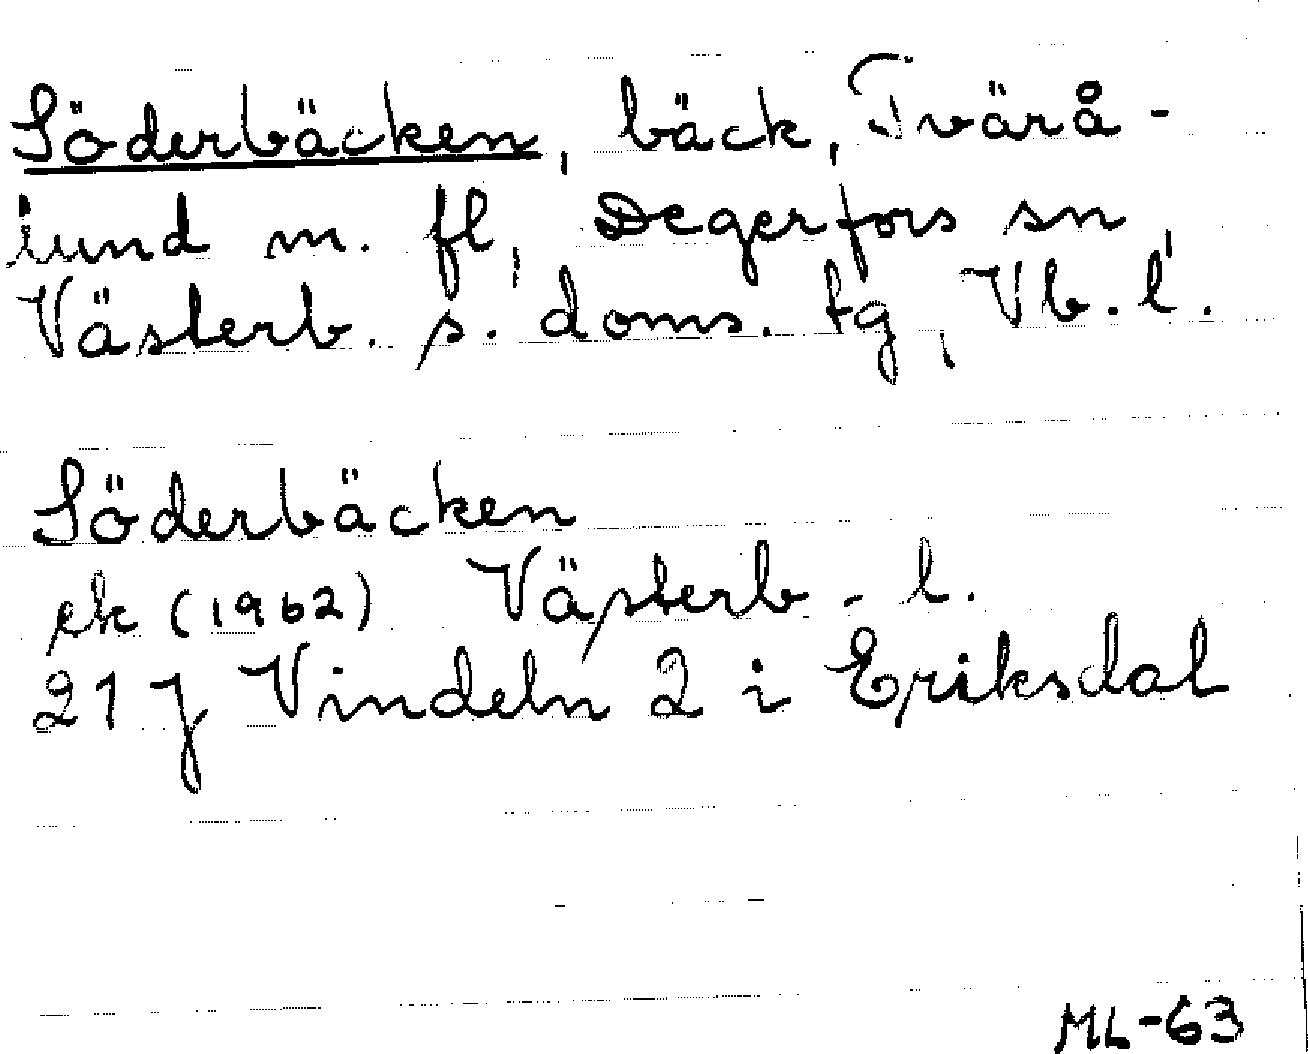 Söderbäcken, bäck, Tvärå-
lund m. fl, Degerfors sn,
Västerb. s. doms. tg, Vb. l.
Söderbäcken
ek (1962) Västerb - l.
21 J Vindeln 2 i Eriksdal
ML-63